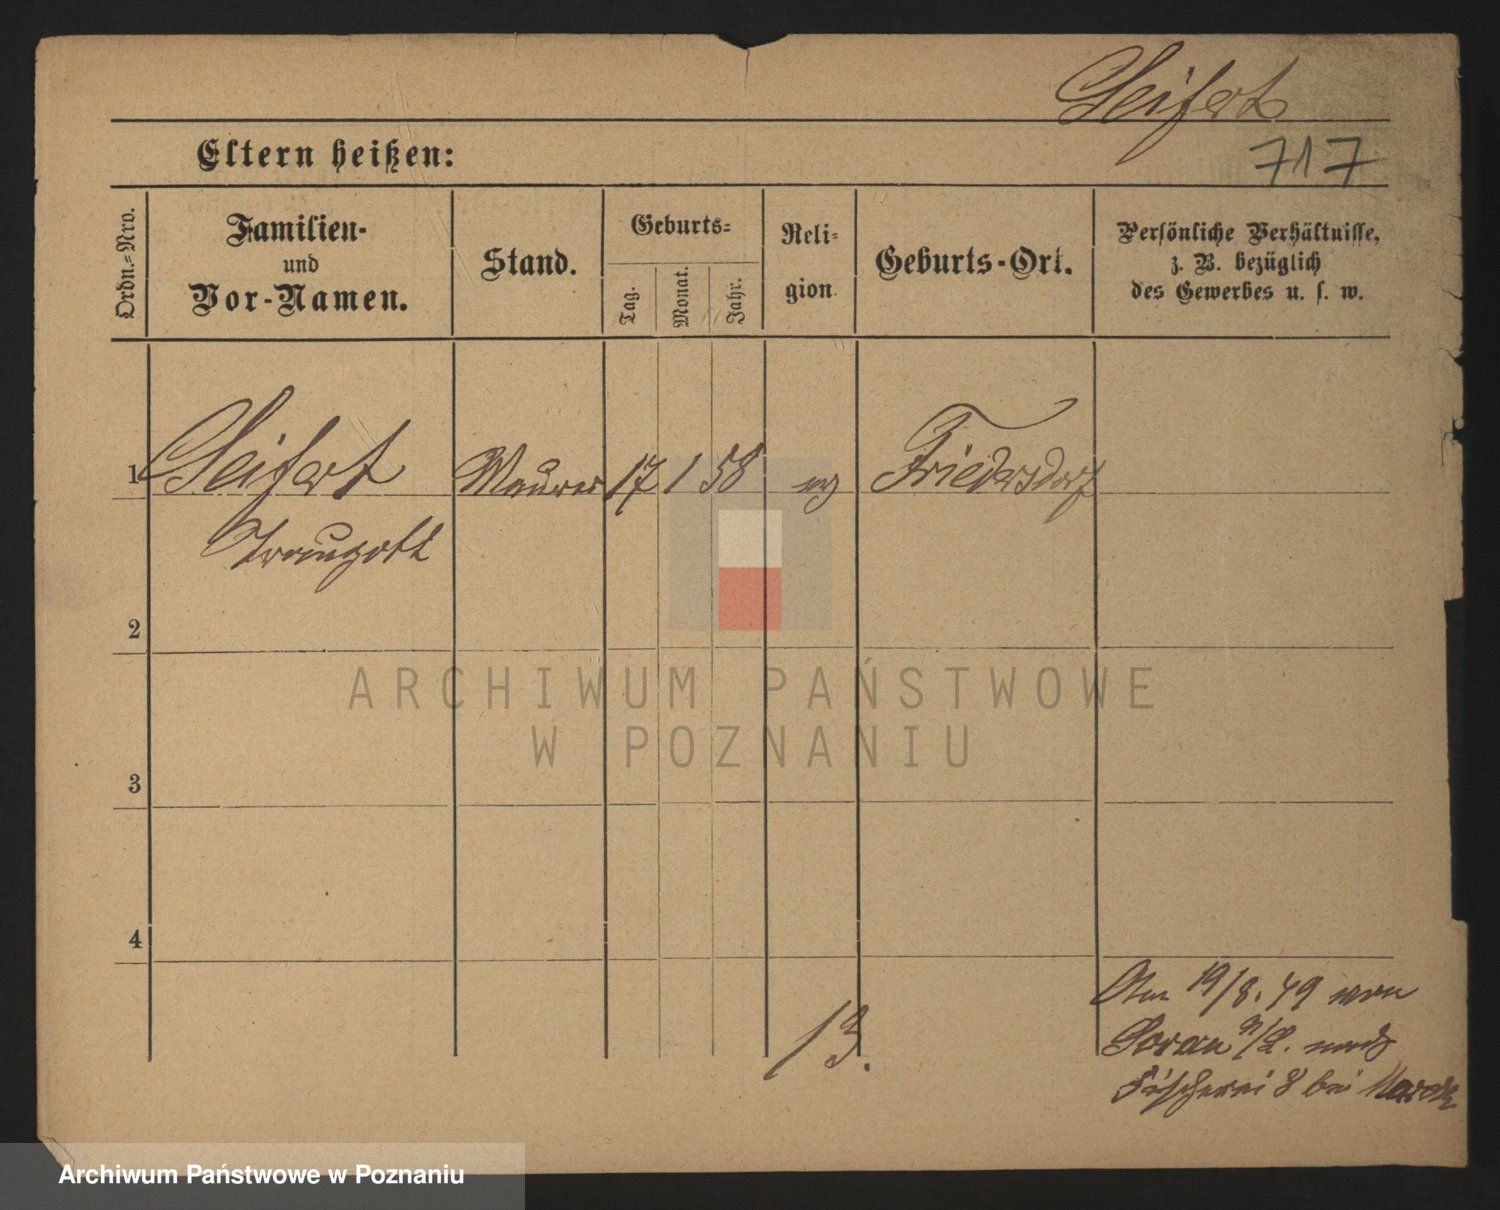 Seifert
717
Eltern heißen:
Ordn.-Nro.
Familien-
und
Vor-Namen.
Stand.
Geburts-
Tag.
Monat.
Jahr.
Reli-
gion
Geburts-Ort.
Persönliche Verhältnisse,
z. B. bezüglich
des Gewerbes u. s. w.
1 Seifert Maurer 17 1 58 ev Friedersdorf
Traugott
2
3
4
Am 19/8. 79 von
Sorau N/L. nach
Fischerei 8 bei
13.
ARCHIWUM PAŃSTWOWE
W POZNANIU
Archiwum Państwowe w Poznaniu